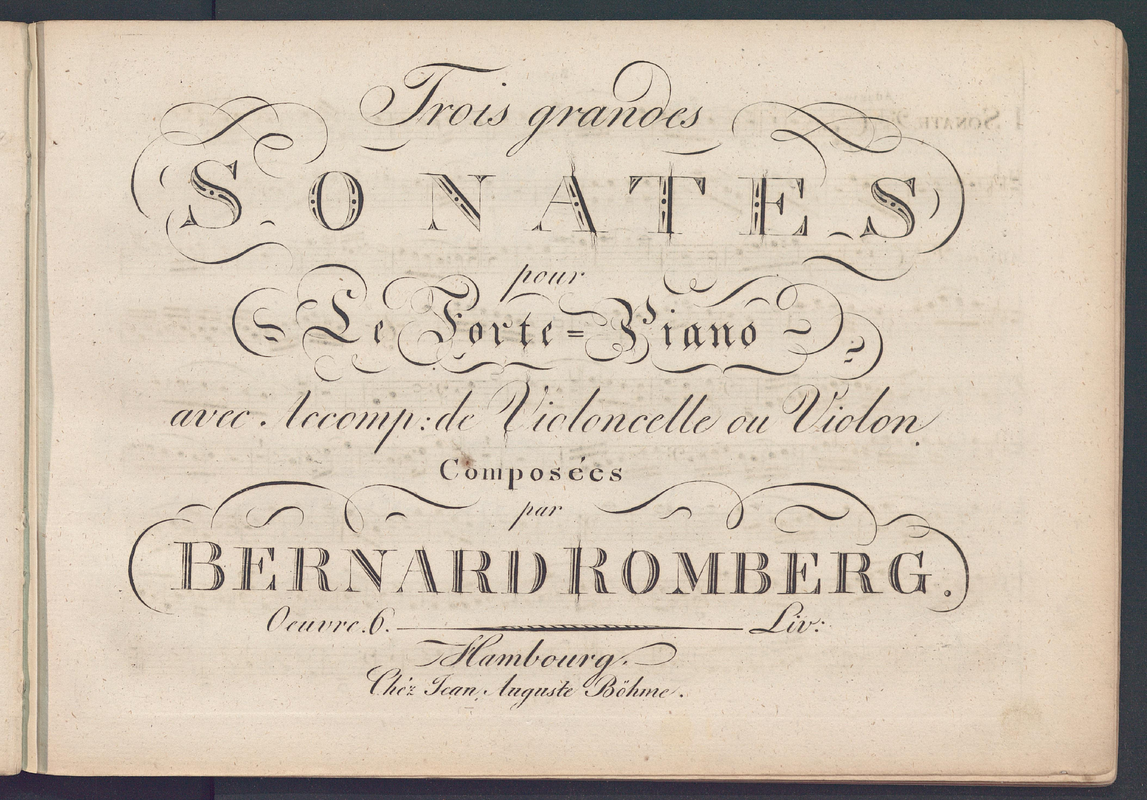 Trois grandes
SONATES
pour
Le Forte=Piano
avec Accomp: de Violoncelle ou Violon.
Composées
par
BERNARD ROMBERG.
Oeuvre.6. Liv:
Hambourg.
Chéz Jean Auguste Böhme.